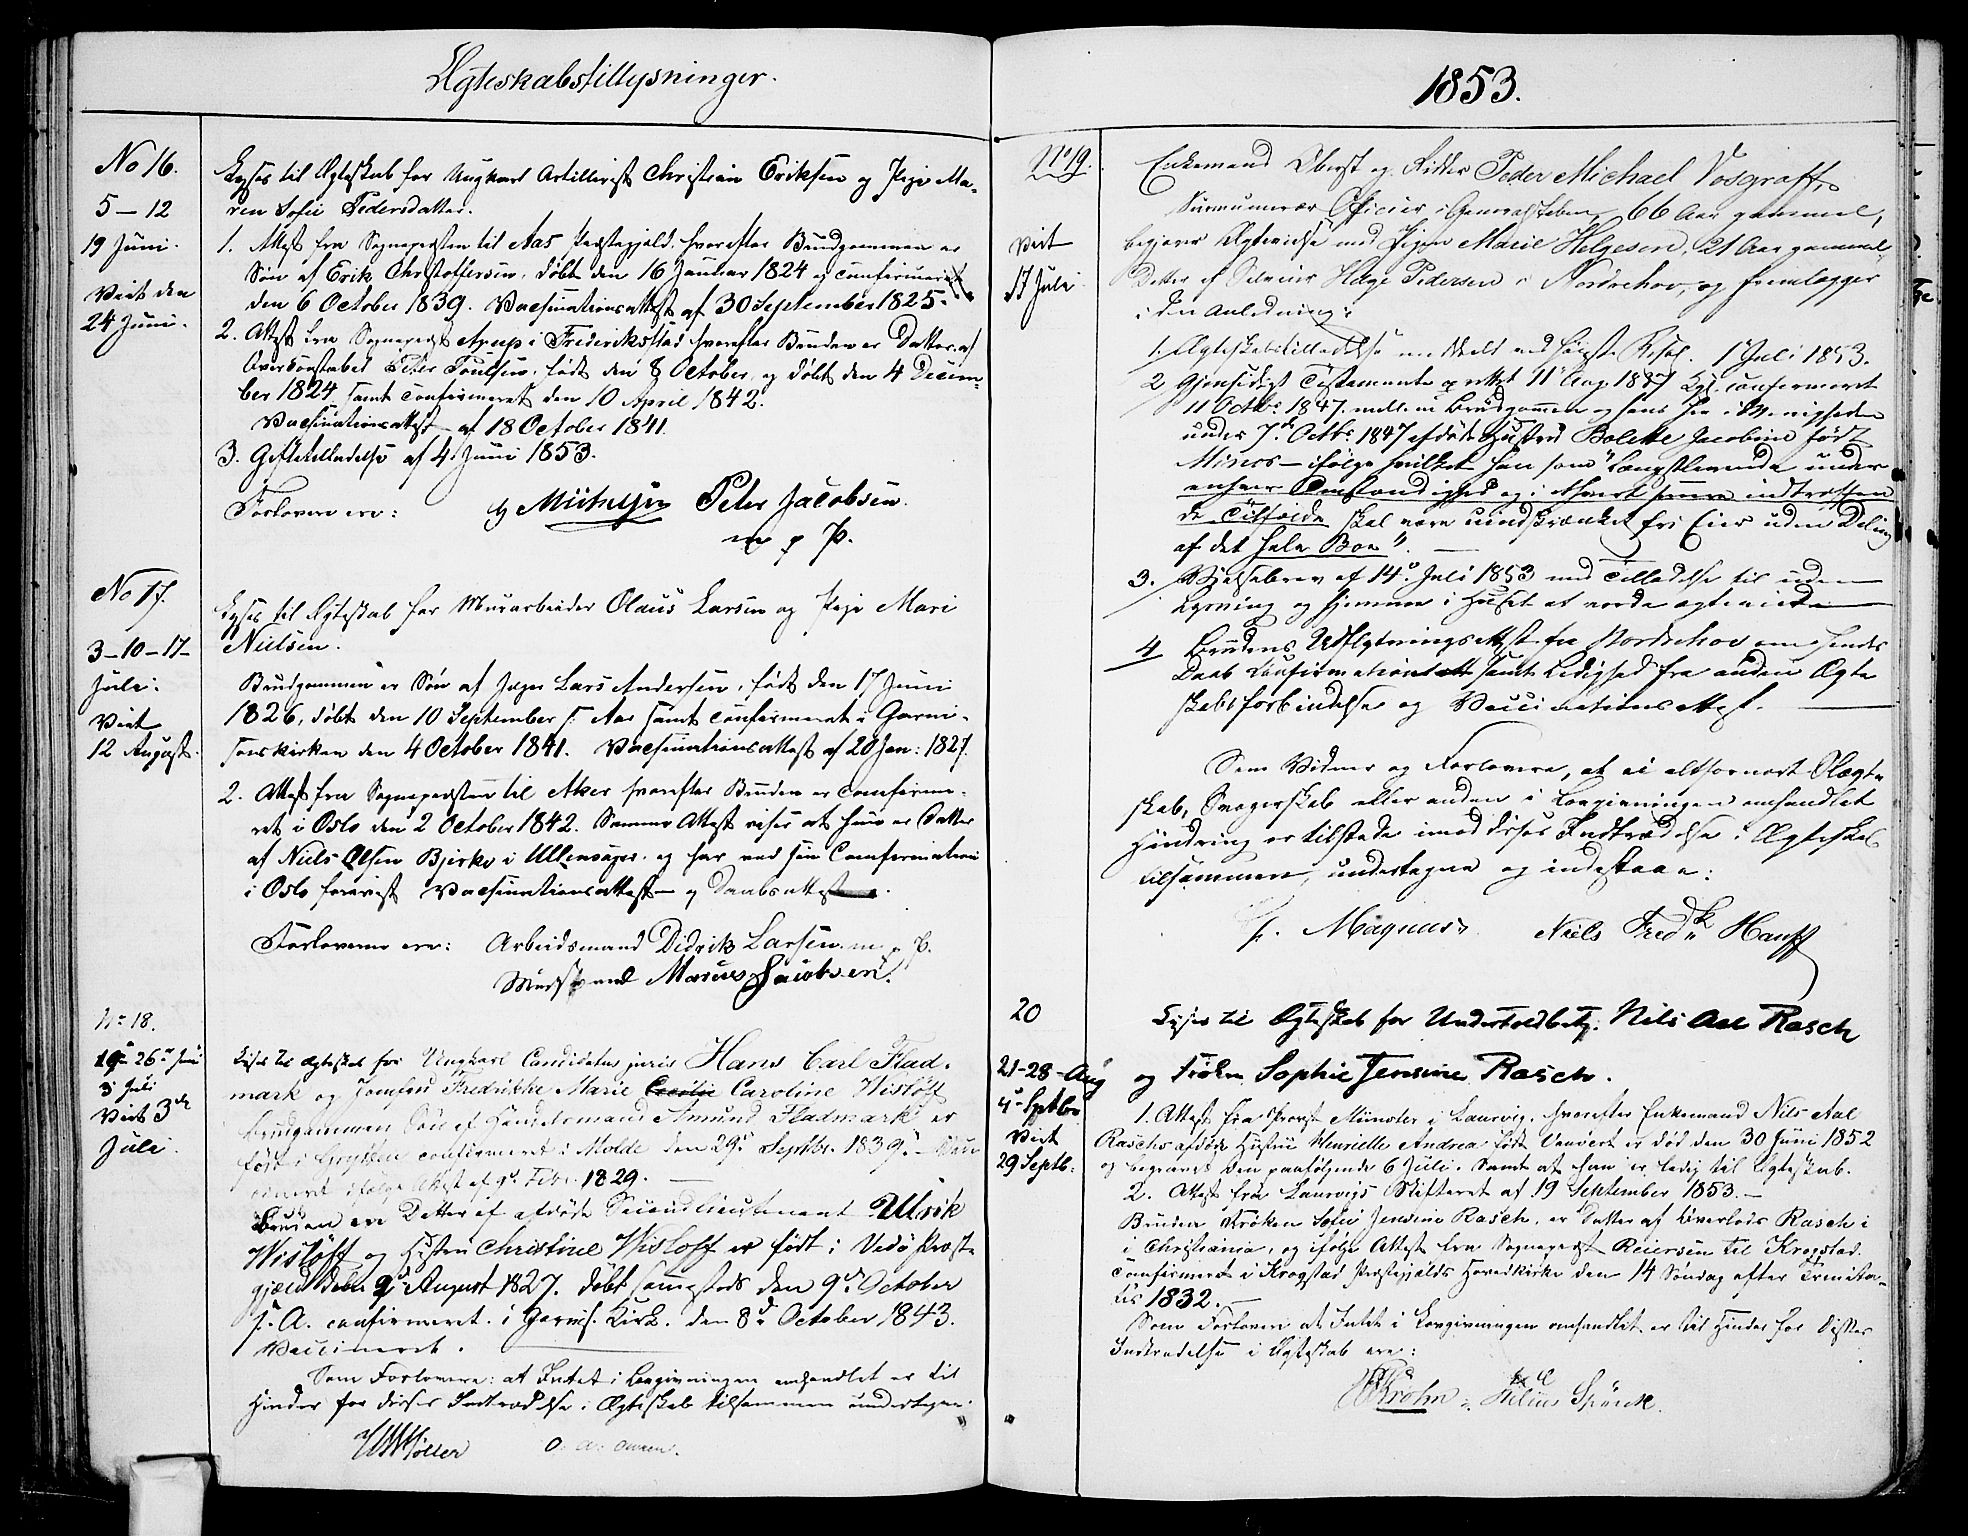 Ægteskabstillysninger.
No 16.
5–12
19 Juni.
Viet den
24 Juni.
Lyses til Ægteskab for Ungkarl Artillerist Christian Eriksen og Pige Ma-
ren Sofie Pedersdatter.
1. Attest fra Sognepresten til Aas Præstegjæld, hvorefter Brudgommen er
Søn af Erik Christoffersen, døbt den 16 Januar 1824 og confirmeret
den 6 October 1839. Vaccinationsattest af 30 September 1825.
2. Attest fra Sognepræst Arup i Frederikstad hvorefter Bruden er Datter af
Overconstabel Peter Poulsen, født den 8 October, og døbt den 4 Decem-
ber 1824 samt confirmeret den 10 April 1842.
Vaccinationsattest af 18 October 1841.
3. Giftetilladelse af 4 Juni 1853.
Forlovere ere: Peter Jacobsen.
m p P.
No 17.
3–10–17–
Juli.
Viet
12 August.
Lyses til Ægteskab for Murarbeider Olaus Larsen og Pige Mari
Nielsen.
Brudgommen er Søn af Lars Andersen, født den 17 Juni
1826, døbt den 10 September s. Aar samt confirmeret i Garni-
sonskirken den 4 October 1841. Vaccinationsattest af 20 Jan: 1827.
2. Attest fra Sognepresten til Aker hvorefter Bruden er Confirme-
ret i Oslo den 2 October 1842. Samme Attest viser at hun er Datter
af Niels Olsen Bjerke i Ullensager og har ved sin Confirmation
i Oslo foreviist Vaccinationsattest og Daabsattest.
Forloverne ere: Arbeidsmand Didrik Larsen m p P.
Marius Jacobsen.
No 18.
19de 26de Juni
3 Juli
Viet 3de
Juli.
Lyses til Ægteskab for Ungkarl Candidatus juris Hans Carl Flad-
mark og Jomfru Fredrikke Marie Cecilie Caroline Wisløff
Brudgommen Søn af Handelsmand Amund Fladmark er
født i Grytten confirmeret i Molde den 29de Septbr. 1839. Vac
cineret ifølge Attest af 9de Febr. 1829.
Bruden er Datter af afdøde Secondlieutenant Ulrik
Wisløff og Hustru Christine Wisløff er født i Vedø Præste
gjæld den 9de August 1827. døbt sammesteds den 9de October
s. A. confirmeret i Garnis. Kirk. den 8de October 1843.
Vaccineret.
Som Forlovere: at Intet i Lovgivningen omhandlet er til
Hinder for disses Indtrædelse i Ægteskab tilsammen undertegne.
Møller
1853.
No 19.
Viet
17 Juli
Enkemand Oberst og Ridder Peder Michael Vosgraff,
Surnumerær Officier i Generalstaben 66 Aar gammel,
begjærer Ægtevielse med Pigen Marie Helgesen, 21 Aar gammel
Datter af Helge Pedersen i Nordrehov, og fremlægger
i den Anledning:
1. Ægteskabstilladelse meddelt ved høieste Resol. 1 Juli 1853.
2 Gjensidigt Testamente oprettet 11 Aug 1847 Kgl. confirmeret
11 Octbr 1847. mellem Brudgommen og hans her i Menigheden
under 7de Octbr 1847 afdøde Hustru Bolette Jacobine født
– ifølge hvilket han som "Længstlevende under
enhver Omstændighed og i ethvert indtræffen
de Tilfælde skal være uindskrænket fri Eier uden Deling
af det hele Boe".
3. Bevillingsbrev af 14de Juli 1853 med Tilladelse til uden
Lysning og hjemme i Huset at vorde ægteviede
4 Brudens Udflytningsattest fra Nordrehov om hendes
Daab Confirmation samt Ledighed fra anden Ægte
skabsforbindelse og Vaccinationsattest.
Som Vidner og Forlovere, at ei altfornært Slægt-
skab, Svogerskab eller anden i Lovgivningen omhandlet
Hindring er tilstede imod disses Indtrædelse i Ægteskab
tilsammen, undertegne og indestaae:
Magnus. Niels Fredk Hauff
20
21–28–Aug
4de Septbr
Viet
29 Septb:
Lyses til Ægteskab for Underfoldbetj. Nils Aal Rasch
og Frøken Sophie Jensine Rasch.
1. Attest fra Provst Münster i Laurvig, hvorefter Enkemand Nils Aal
Raschs afdøde Hustru Henriette Andrea født er død den 30 Juni 1852
og begravet den paafølgende 6 Juli. Samt at han er ledig til Ægteskab.
2. Attest fra Laurvigs Skifteret af 19 September 1853.–
Bruden Frøken Sofie Jensine Rasch, er Datter af Rasch i
i Christiania, og ifølge Attest fra Sognepræst Reiersen til Krogstad
confirmeret i Krogstad Præstegjælds Hovedkirke den 14 Søndag efter Trinita-
tis 1832.
Som Forlovere at Intet i Lovgivningen omhandlet er til Hinder for disses
Indtrædelse i Ægteskab ere:
Krohn Spörck.